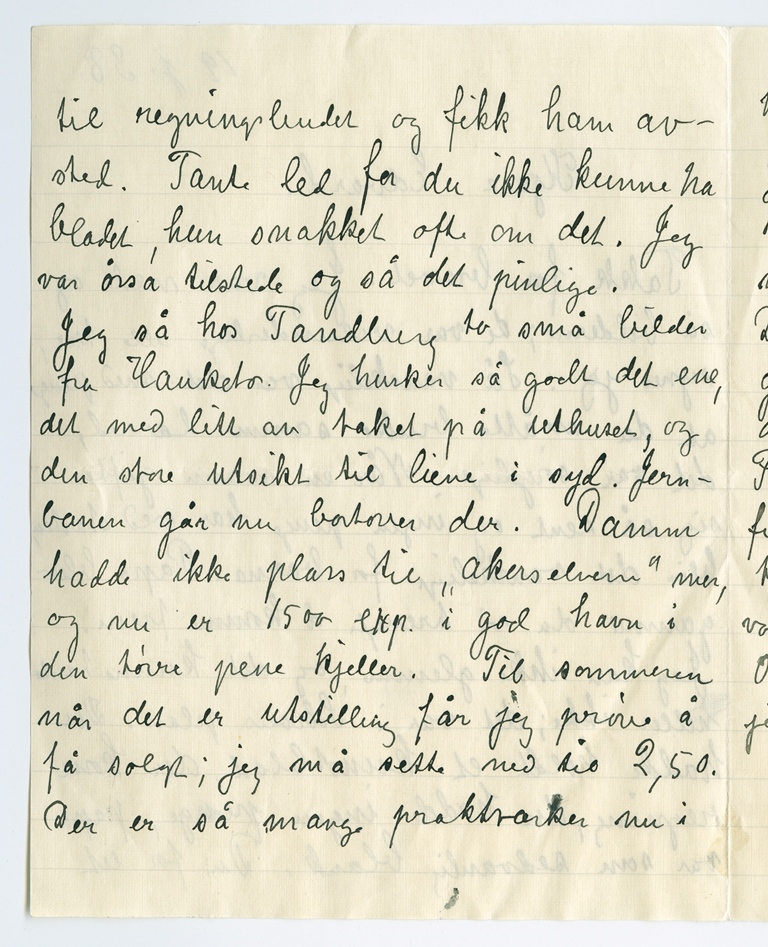 til regningsbudet og fikk ham av-
sted. Tante led for du ikke kunne ha
bladet, hun snakket ofte om det. Jeg
var også tilstede og så det pinlige.
Jeg så hos Tandberg to små bilder
fra Hauketo. Jeg husker så godt det ene,
det med litt av taket på uthuset, og
den store utsikt til liene i syd. Jern-
banen går nu bortover der. Damm
hadde ikke plass til „akerselven" mer,
og nu er 1500 exp. i god havn i
den tørre pene kjeller. Til sommeren
når det er utstilling får jeg prøve å
få solgt; jeg må sette ned til 2,50.
Der er så mange praktværker nu i